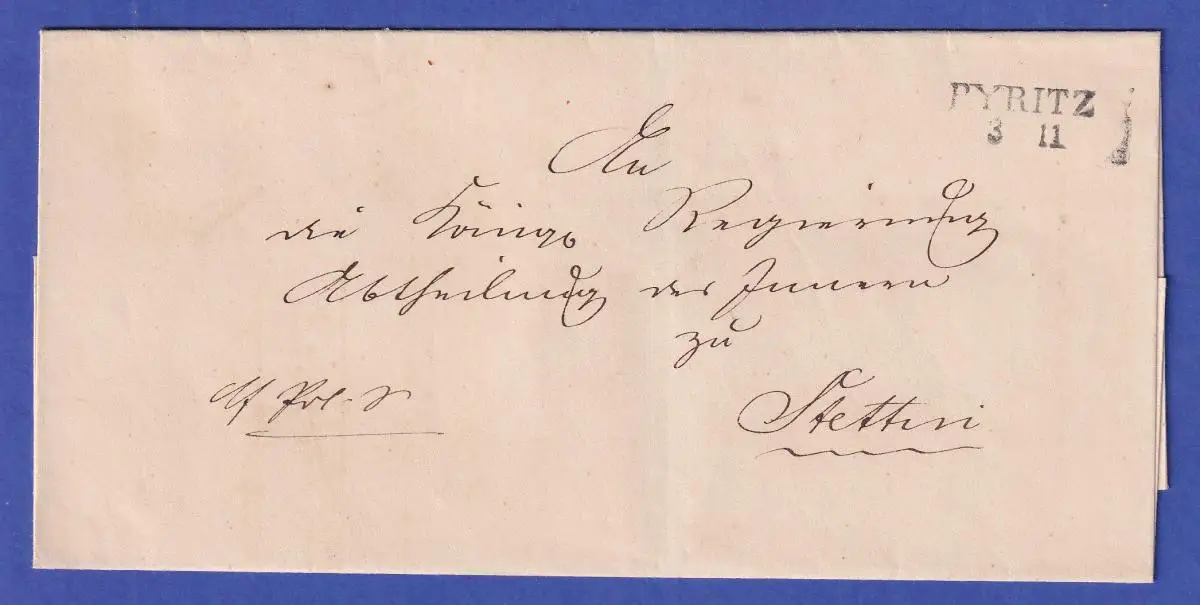 PYRITZ
3 11
An
die Königl
Regierung
Abtheilung des Innern
zu
Stettin
Pol. S